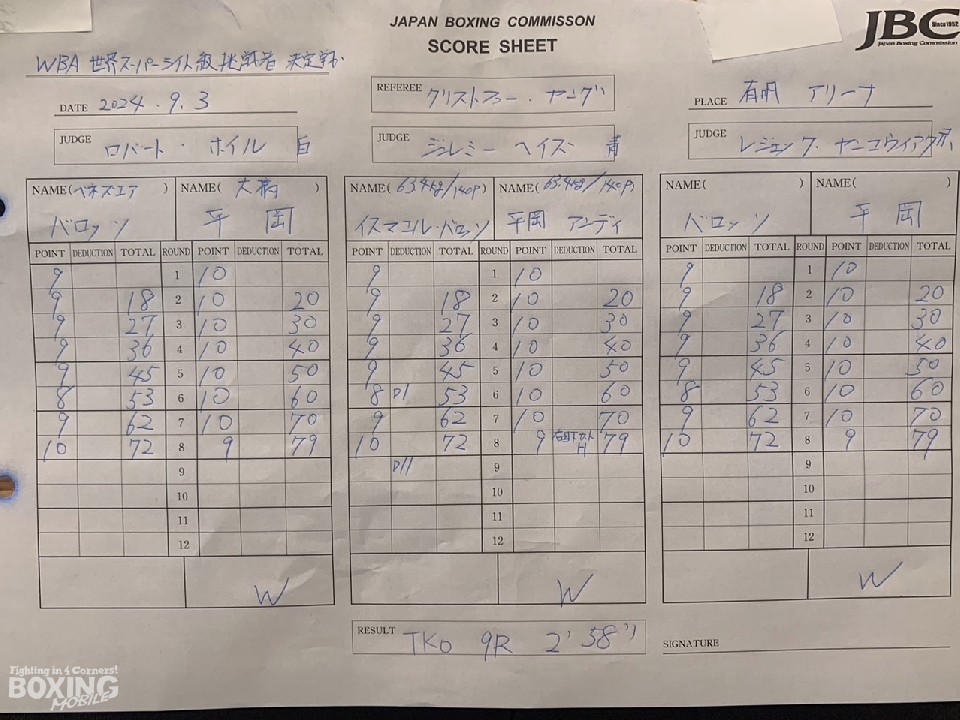 JAPAN BOXING COMMISSON
SCORE SHEET
JBC Since1952
Japan Boxing Commission
WBA 世界スーパーライト級挑戦者 決定戦
DATE 2024.9.3
REFEREE クリストファー・ヤング
PLACE 有明 アリーナ
JUDGE ロバート・ホイル 白
JUDGE ジェレミー ヘイズ 青
JUDGE
NAME(ベネズエラ) NAME(大橋)
バロッソ 平岡
POINT DEDUCTION TOTAL ROUND POINT DEDUCTION TOTAL
9 1 10
9 18 2 10 20
9 27 3 10 30
9 36 4 10 40
9 45 5 10 50
8 53 6 10 60
9 62 7 10 70
10 72 8 9 79
9
10
11
12
W
NAME(63.4kg/140P) NAME(63.4kg/140P)
イスマエル・バロッソ 平岡 アンディ
POINT DEDUCTION TOTAL ROUND POINT DEDUCTION TOTAL
9 1 10
9 18 2 10 20
9 27 3 10 30
9 36 4 10 40
9 45 5 10 50
8 D1 53 6 10 60
9 62 7 10 70
10 72 8 9 79
D11 9
10
11
12
W
NAME( ) NAME( )
バロッソ 平岡
POINT DEDUCTION TOTAL ROUND POINT DEDUCTION TOTAL
9 1 10
9 18 2 10 20
9 27 3 10 30
9 36 4 10 40
9 45 5 10 50
8 53 6 10 60
9 62 7 10 70
10 72 8 9 79
9
10
11
12
W
RESULT TKO 9R 2'58"
SIGNATURE
Fighting in 4 Corners!
BOXING
MOBILE